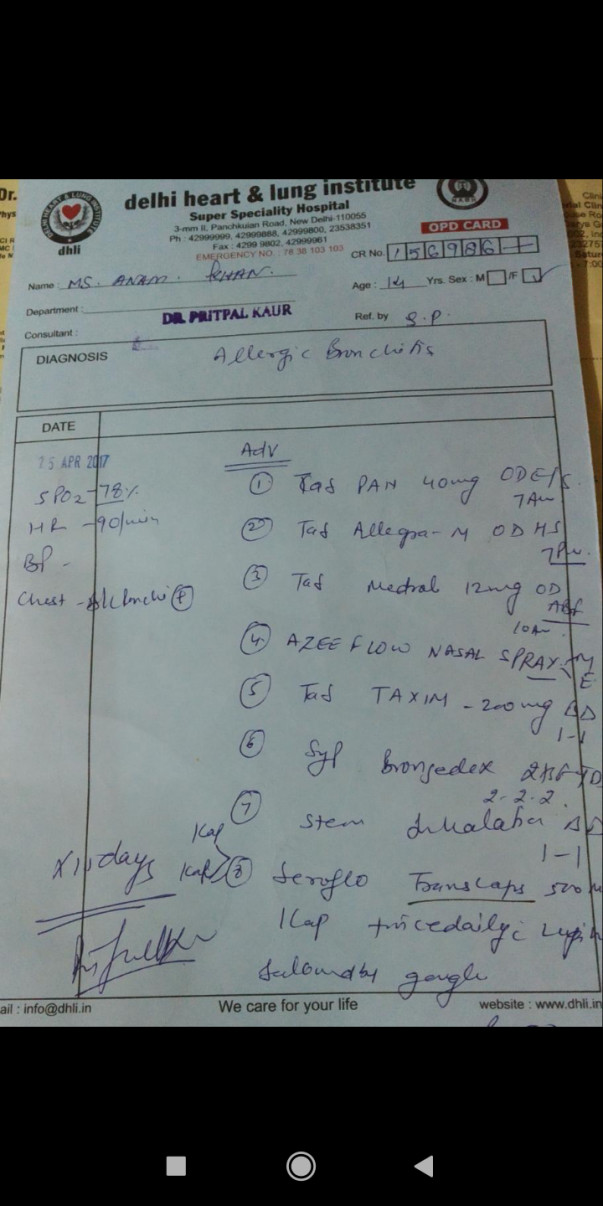 Dr.
delhi heart & lung institute
Super Speciality Hospital
3-mm II, Panchkuian Road, New Delhi-110055
Ph : 42999999, 42999888, 42999800, 23538351
Fax : 4299 9802, 42999961
EMERGENCY NO : 78 38 103 103
dhli
OPD CARD
CR No. 156986
Name : MS. ANAM. KHAN.
Age : 14 Yrs. Sex : M /F
Department :
DR. PRITPAL KAUR
Ref. by S.P.
Consultant :
DIAGNOSIS
Allergic Bronchitis
DATE
25 APR 2017
Adv
SPO2 - 78%
HR - 90/min
BP -
Chest -
① Tab PAN 40mg OD E/S
7Am
② Tab Allegra-M OD HS
7Pm
③ Tab Medrol 12mg OD
ABF
10Am
④ AZEEFLOW NASAL SPRAY M
E
⑤ Tab TAXIM - 200mg BD
1-1
⑥ Syp Bronzedex TD
2-2-2.
⑦ Stem Inhalation BD
1-1
Kap
Kap
⑧ Seroflo Transcaps 500
1 Kap twice daily c
gargle
days
ail : info@dhli.in
We care for your life
website : www.dhli.in